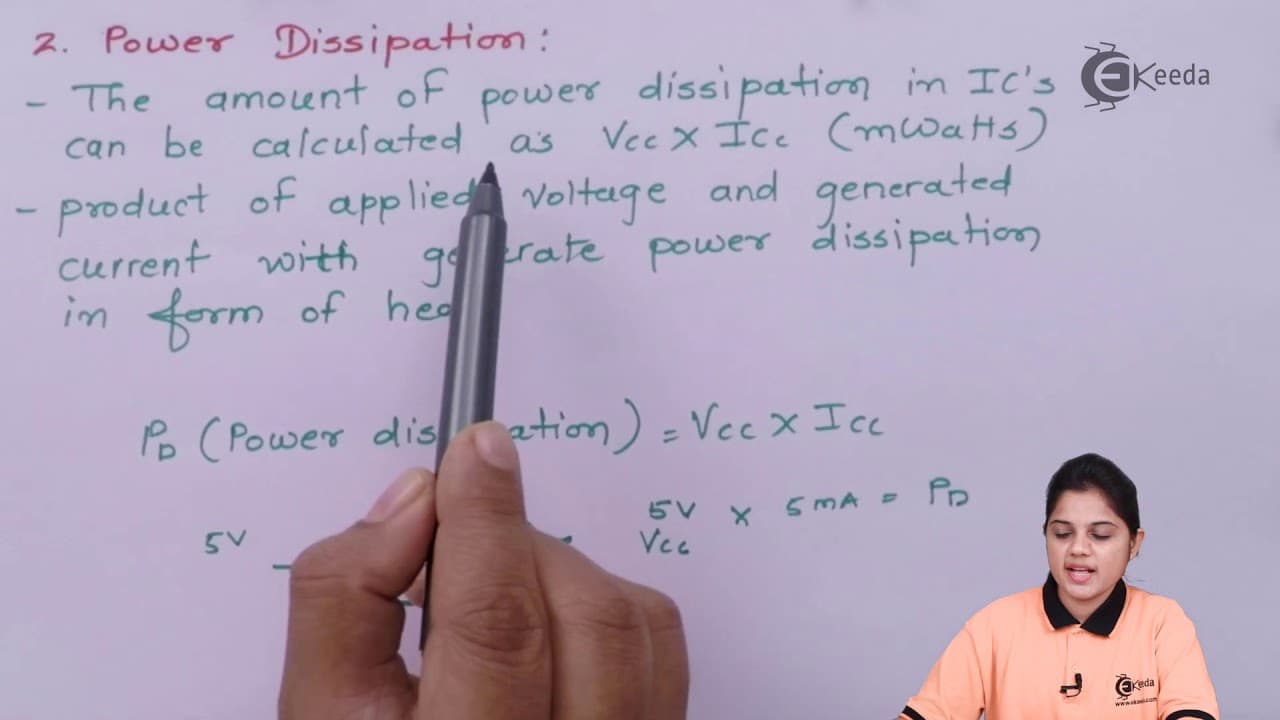 2. Power Dissipation:
- The amount of power dissipation in IC's
can be calculated as Vcc X Icc (mWatts)
- product of applied voltage and generated
current with rate power dissipation
in form of
PD (Power ation) = Vcc X Icc
5V x 5mA = PD
5V Vcc
EKeeda
EKeeda
www.ekeeda.com